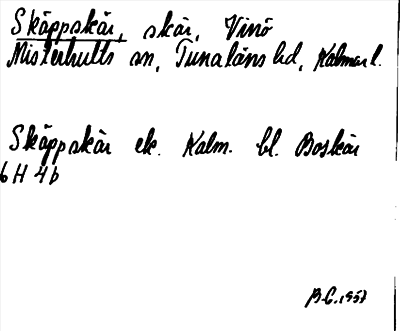 Skäppskär, skär, Vinö
Misterhults sn, Tunaläns hd, Kalmar l.
Skäppskär ek. Kalm. bl. Boskär
6 H 4 b
B.C. 1957